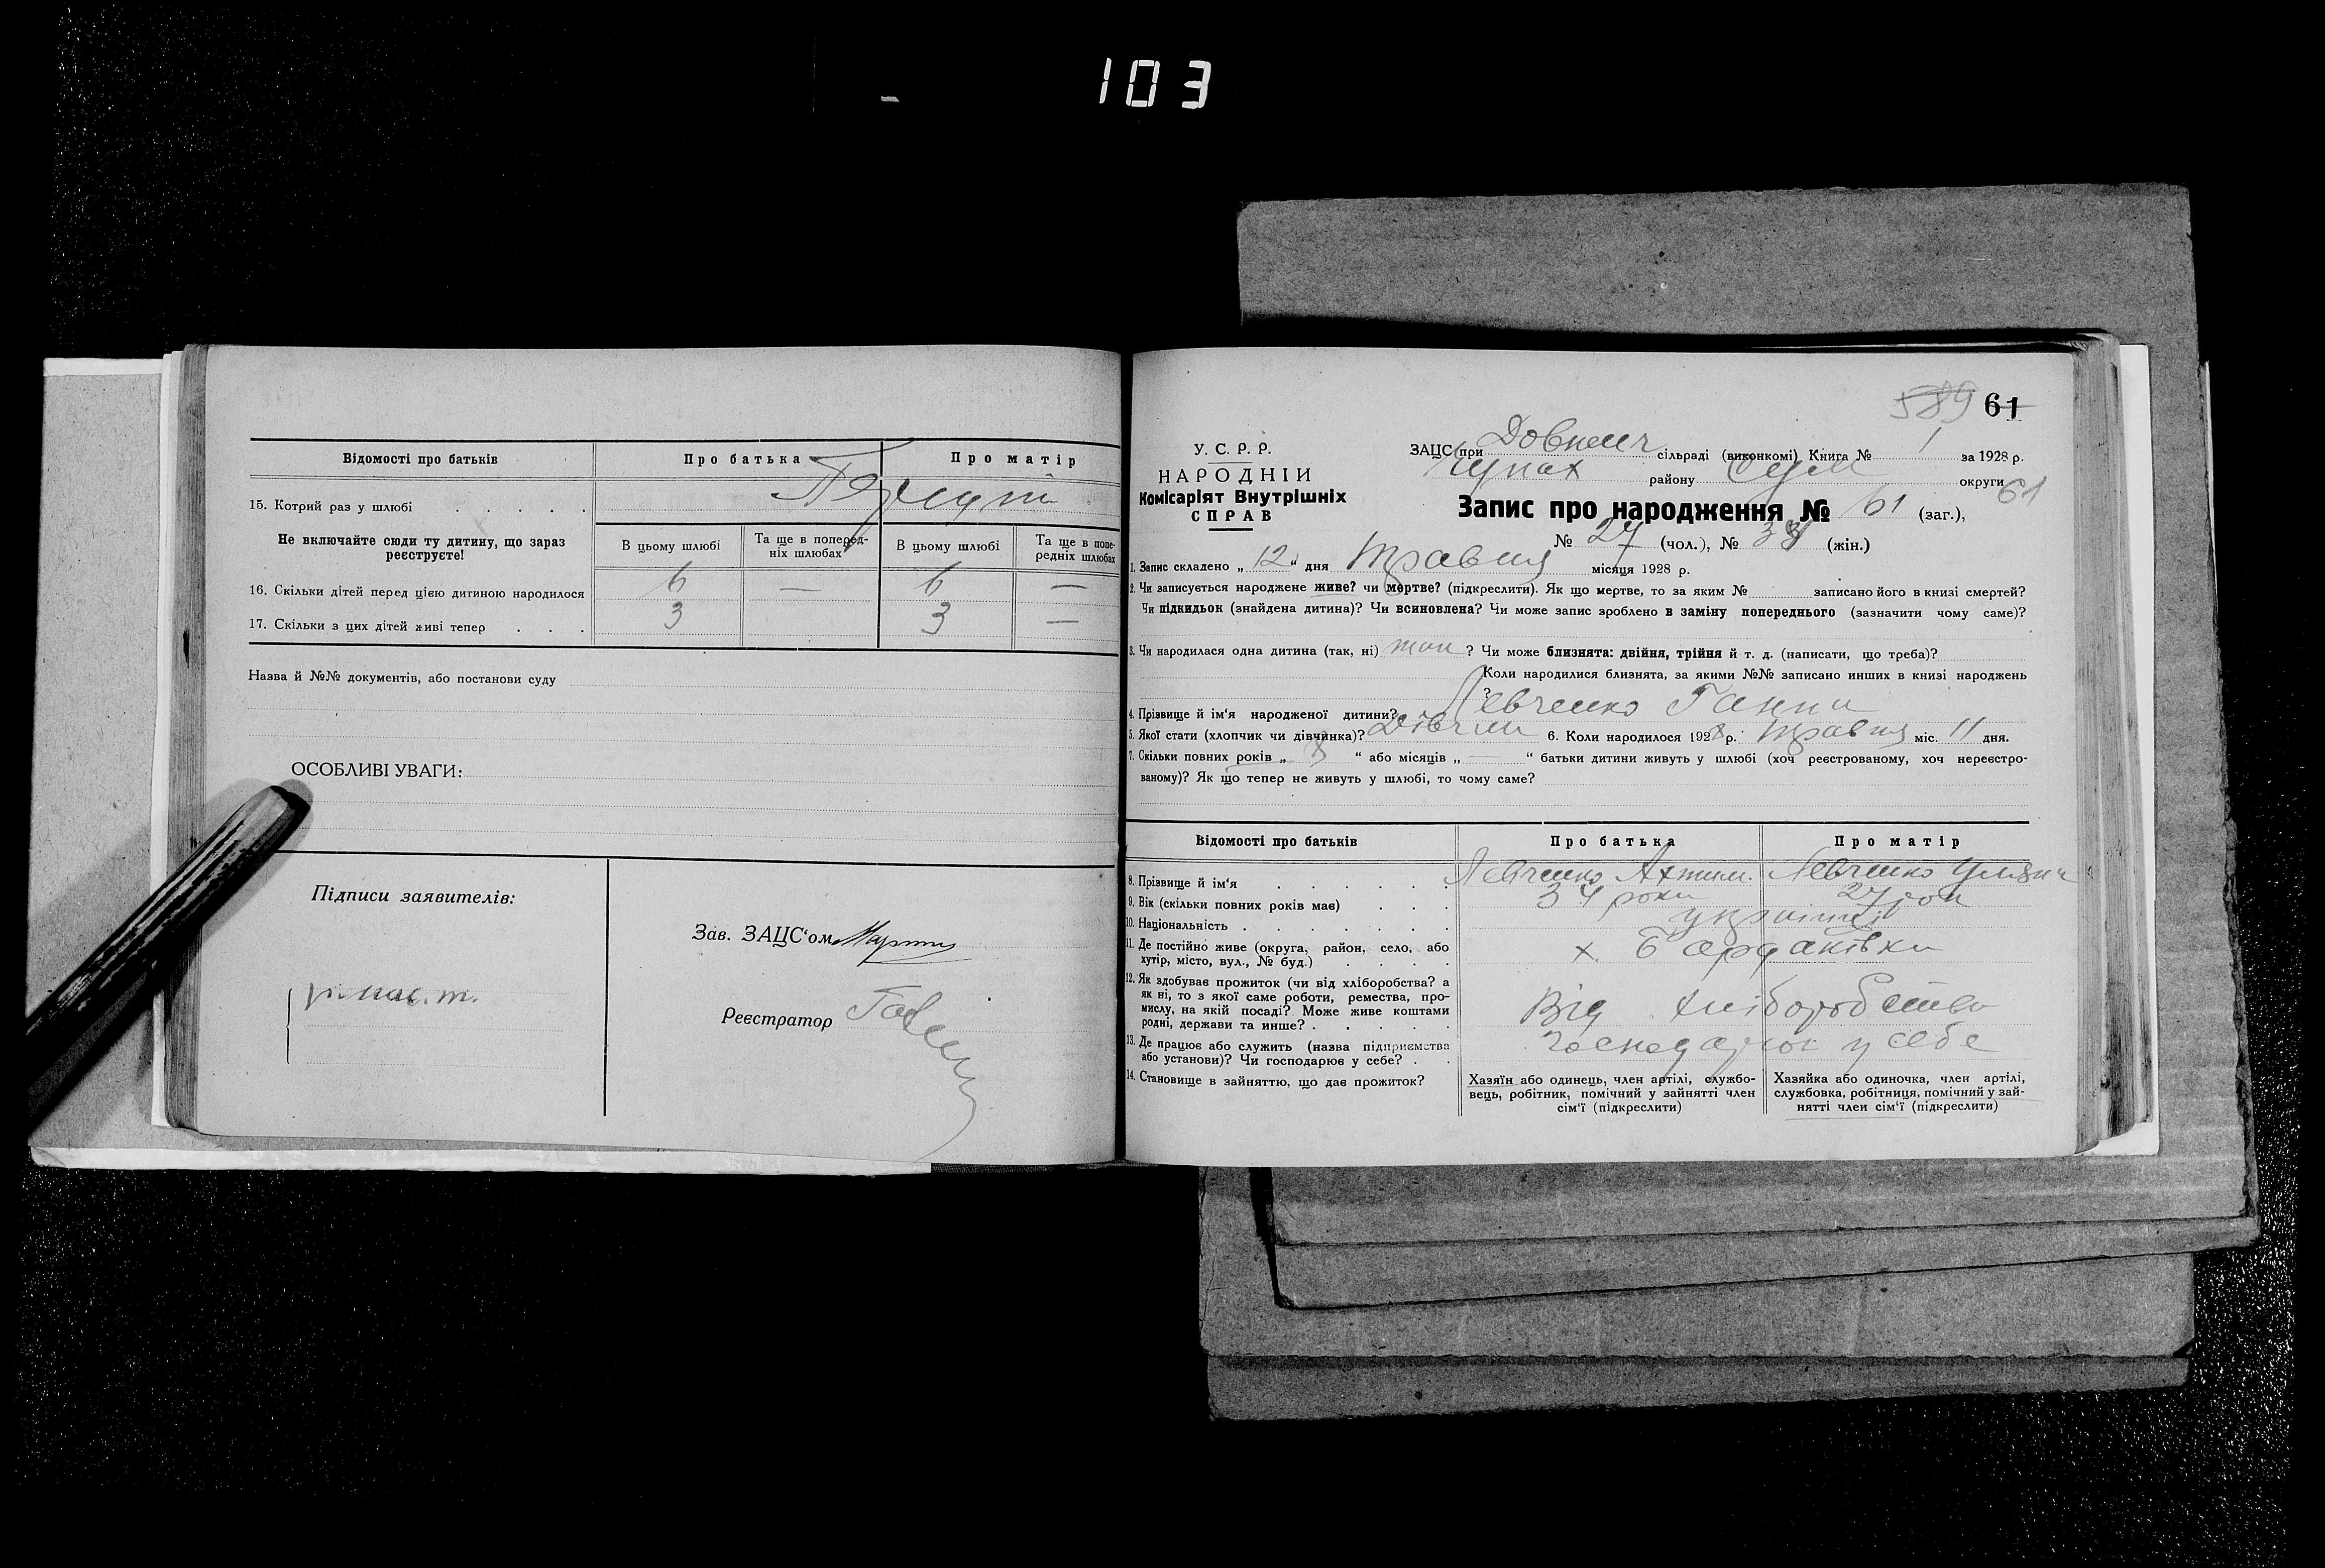 103
Відомості про батьків
Про батька
Про матір
15. Котрий раз у шлюбі
Не включайте сюди ту дитину, що зараз реєструєте!
В цьому шлюбі
Та ще в поперед-
ніх шлюбах
В цьому шлюбі
Та ще в попе-
редніх шлюбах
16. Скільки дітей перед цією дитиною народилося 6 — 6 —
17. Скільки з цих дітей живі тепер 3 3 —
Назва й №№ документів, або постанови суду
ОСОБЛИВІ УВАГИ:
Підписи заявителів:
Зав. ЗАЦС'ом
Реєстратор
589 61
У. С. Р. Р.
НАРОДНІЙ
Комісаріят Внутрішніх
СПРАВ
ЗАЦС при сільраді (виконкомі) Книга № 1 за 1928 р.
району Сум округи
61
Запис про народження № 61 (заг.),
№ 27 (чол.), № (жін.)
1. Запис складено „12" дня травня місяця 1928 р.
2. Чи записується народжене живе? чи мертве? (підкреслити). Як що мертве, то за яким № записано його в книзі смертей?
Чи підкидьок (знайдена дитина)? Чи всиновлена? Чи може запис зроблено в заміну попереднього (зазначити чому саме)?
3. Чи народилася одна дитина (так, ні) так ? Чи може близнята: двійня, трійня й т. д. (написати, що треба)?
Коли народилися близнята, за якими №№ записано инших в книзі народжень
?
4. Прізвище й ім'я народженої дитини? Левченко Ганна
5. Якої стати (хлопчик чи дівчинка)? Дівчин 6. Коли народилося 1928 р. травня міс. 11 дня.
7. Скільки повних років „ " або місяців „ — " батьки дитини живуть у шлюбі (хоч реєстрованому, хоч нереєстро-
ваному)? Як що тепер не живуть у шлюбі, то чому саме?
Відомості про батьків
Про батька
Про матір
8. Прізвище й ім'я Левченко Левченко Уляна
9. Вік (скільки повних років має) 34 роки 27 рок
10. Національність українці
11. Де постійно живе (округа, район, село, або
хутір, місто, вул., № буд.) х. Бардаківка
12. Як здобуває прожиток (чи від хліборобства? а
як ні, то з якої саме роботи, ремества, про-
мислу, на якій посаді? Може живе коштами
родні, держави та инше? Від хліборобства
13. Де працює або служить (назва підприємства
або установи)? Чи господарює у себе? у себе
14. Становище в зайняттю, що дає прожиток?
Хазяїн або одинець, член артілі, службо-
вець, робітник, помічний у зайнятті член
сім'ї (підкреслити)
Хазяйка або одиночка, член артілі,
службовка, робітниця, помічний у зай-
нятті член сім'ї (підкреслити)